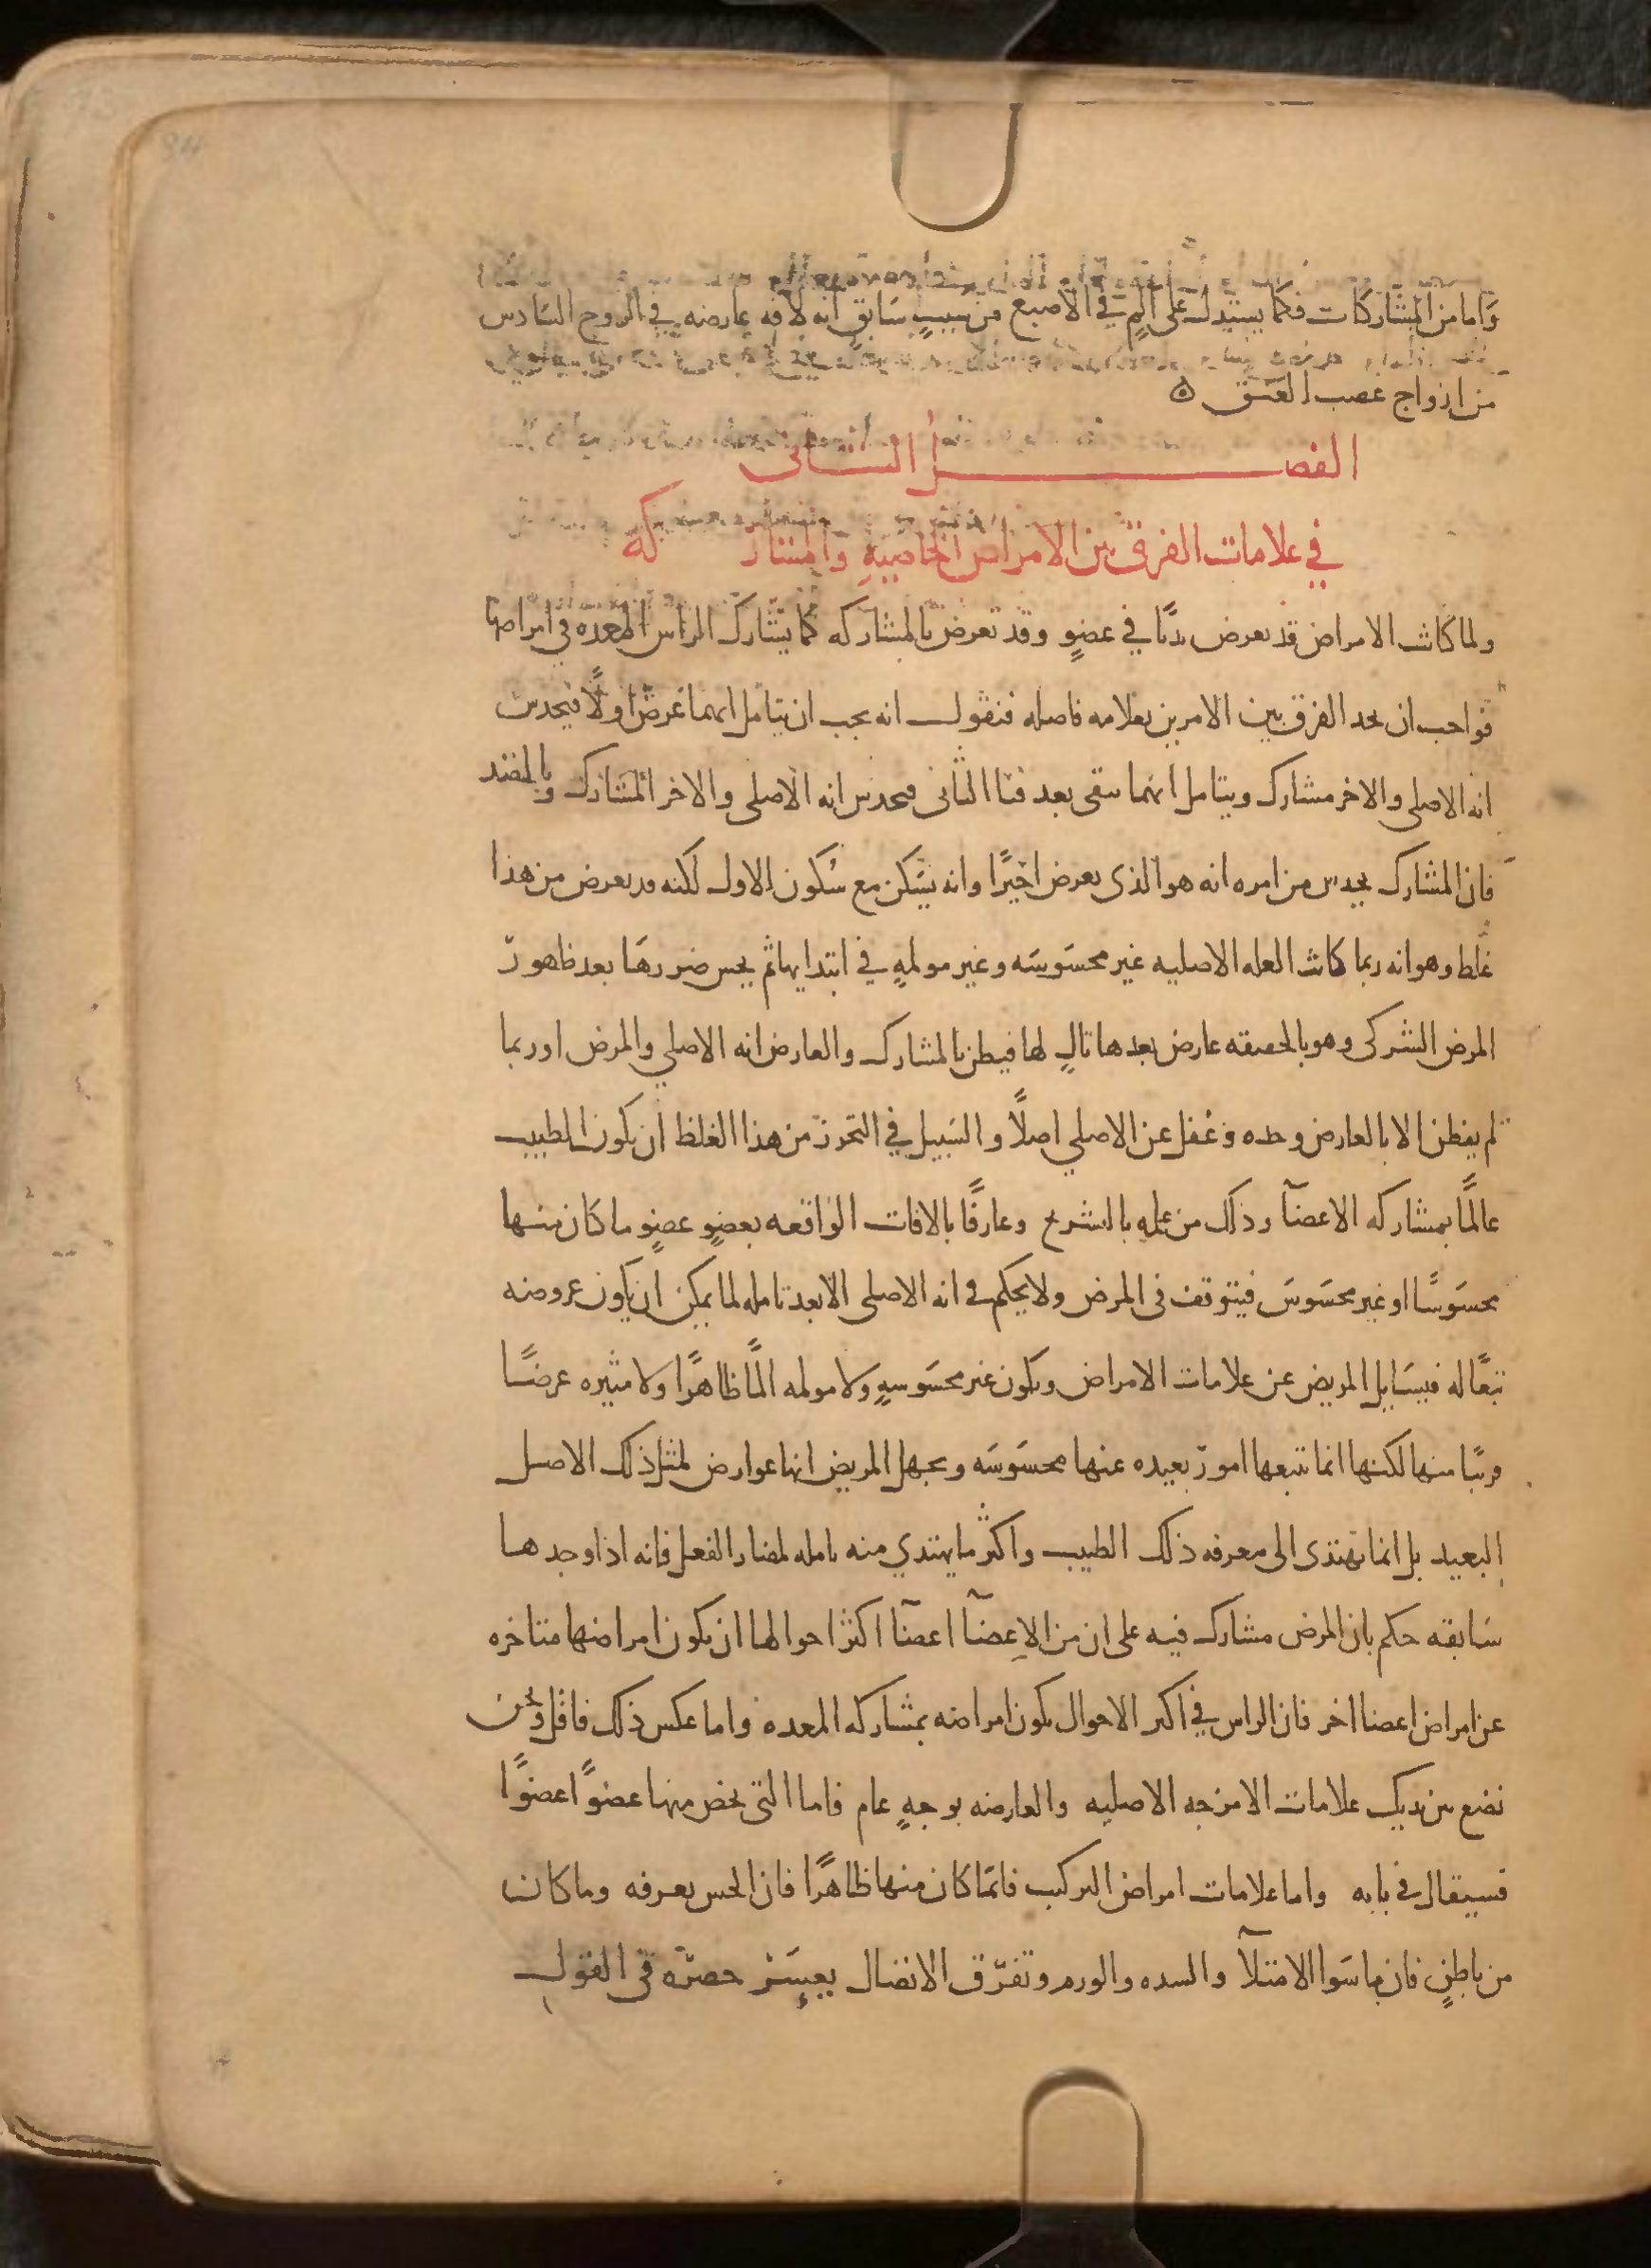 واما من المشاركات فكما يستدل على الم في الاصبع من سبب سابق انه لافه عارضه في الزوج السادس
من ازواج عصب العنق ه
الفصل الثانى
في علامات الفرق بين الامراض الخاصيه والمشاركه
ولما كانت الامراض قد تعرض بديا في عضو وقد تعرض بالمشاركه كما يشارك الراس المعده في امراضها
فواجب ان نحد الفرق بين الامرين بعلامه فاصله فنقول انه يجب ان يتامل ايهما عرض اولا فيحدس
انه الاصلى والاخر مشارك ويتامل ايهما يبقى بعد فنا الثانى فيحدس انه الاصلى والاخر المشارك وبالضد
فان المشارك يحدس من امره انه هو الذى يعرض اخيرا وانه يسكن مع سكون الاول لكنه قد يعرض من هذا
غلط وهو انه ربما كانت العله الاصليه غير محسوسه وغير مولمه في ابتدايها ثم يحس ضررها بعد ظهور
المرض الشركى وهو بالحقيقه عارض بعدها تال لها فيظن بالمشارك والعارض انه الاصلي والمرض او ربما
لم يفطن الا بالعارض وحده وغفل عن الاصلي اصلا والسبيل في التحرز من هذا الغلط ان يكون الطبيب
عالما بمشاركه الاعضآ وذلك من علمه بالتشريح وعارفا بالافات الواقعه بعضو عضو ما كان منها
محسوسا او غير محسوس فيتوقف فى المرض ولا يحكم في انه الاصلى الا بعد تامله لما يمكن ان يكون عروضه
تبعا له فيسايل المريض عن علامات الامراض ويكون غير محسوسه ولا مولمه الما ظاهرا ولا مثيره عرضا
قريبا منها لكنها انما تتبعها امور بعيده عنها محسوسه ويجهل المريض انها عوارض لمثل ذلك الاصل
البعيد بل انما يهتدى الى معرفه ذلك الطبيب واكثر ما يهتدي منه تامله لمضار الفعل فانه اذا وجدها
سابقه حكم بان المرض مشارك فيه على ان من الاعضآ اعضآ اكثر احوالها ان يكون امراضها متاخره
عن امراض اعضا اخر فان الراس في اكثر الاحوال يكون امراضه بمشاركه المعده واما عكس ذلك فاقل ونحن
نضع بين يديك علامات الامزجه الاصليه والعارضه بوجه عام فاما التى يخص منها عضوا عضوا
فسيقال في بابه واما علامات امراض التركيب فاما كان منها ظاهرا فان الحس يعرفه وما كان
من باطن فان ما سوا الامتلآ والسده والورم وتفرق الاتصال يعسر حصره في القول